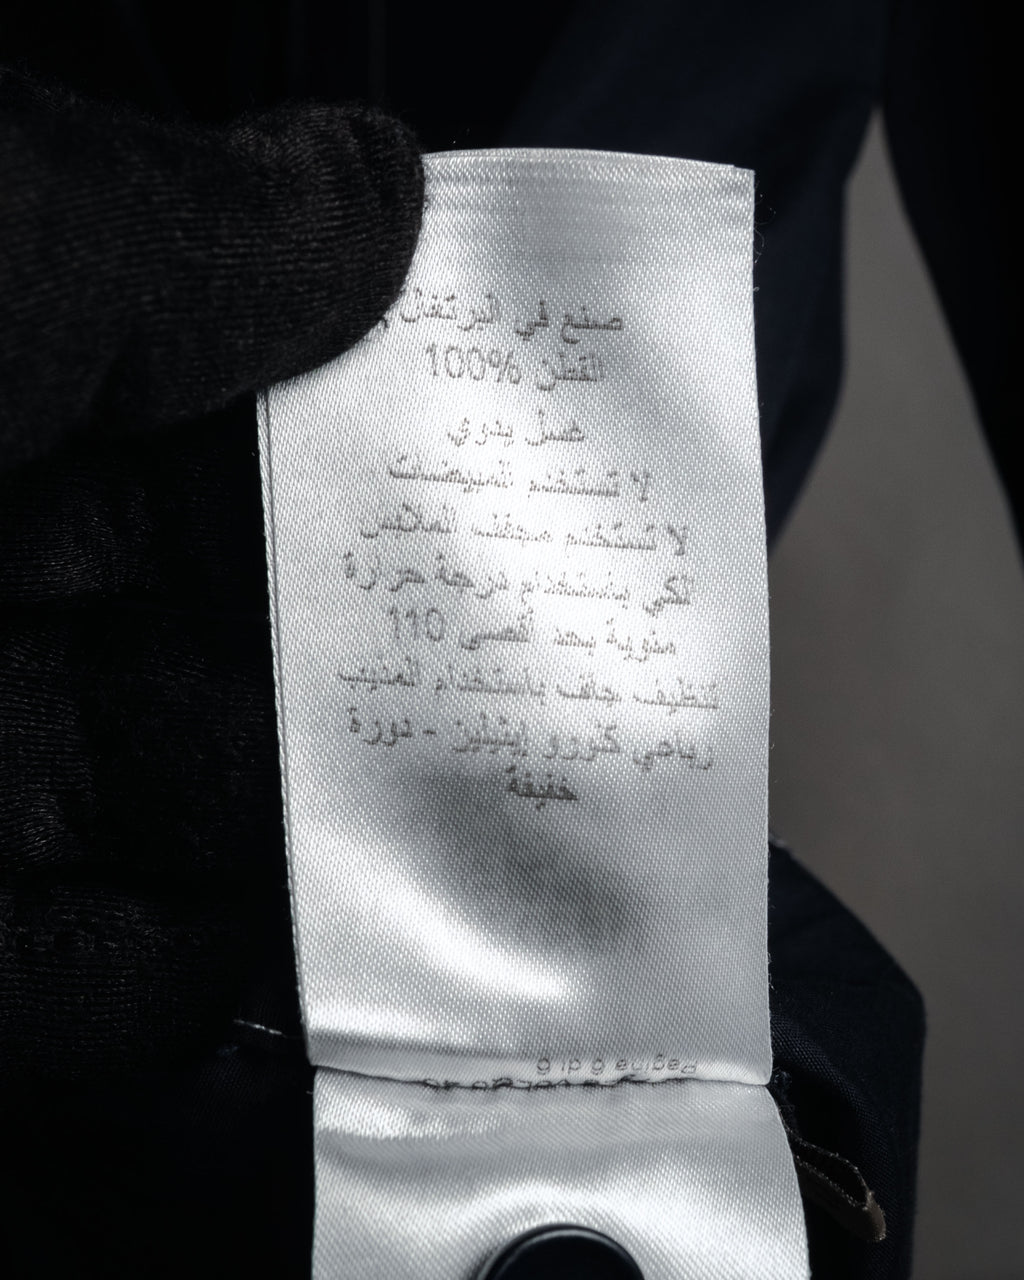 صنع في البرتغال
القطن 100%
غسل يدوي
لا تستخدم المبيضات
لا تستخدم مجفف الملابس
تكي باستخدام درجة حرارة
مئوية بحد أقصى 110
تنظيف جاف باستخدام المذيب
رباعي كلورو إيثيلين - دورة
خفيفة
Pagina 6 di 9